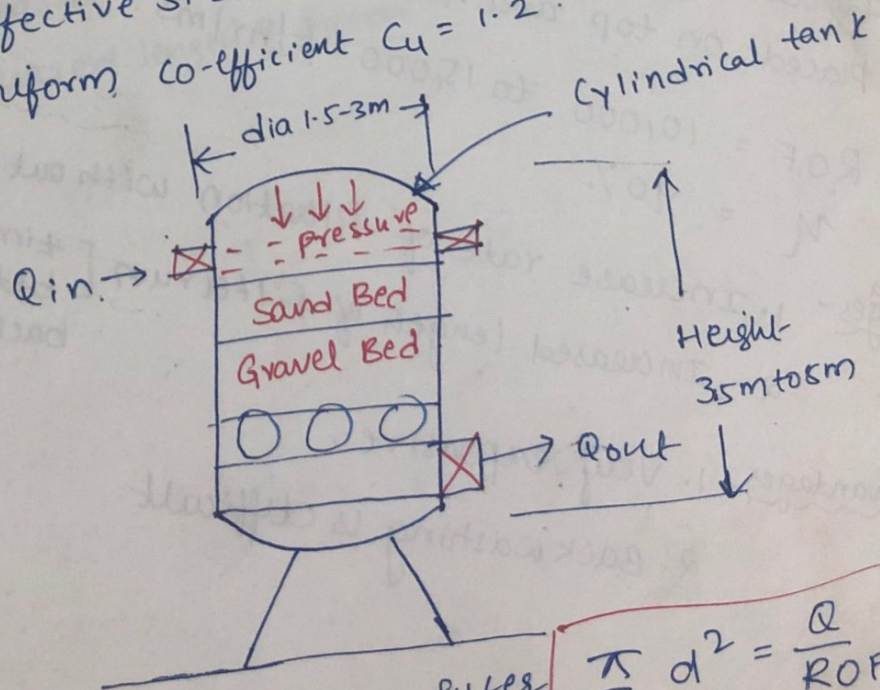 fective
uform co-efficient Cu = 1.2
Cylindrical tank
dia 1.5-3m
pressure
Qin
Sand Bed
Gravel Bed
Height-
3.5m to 8m
Qout
Rules
π d² = Q
ROF